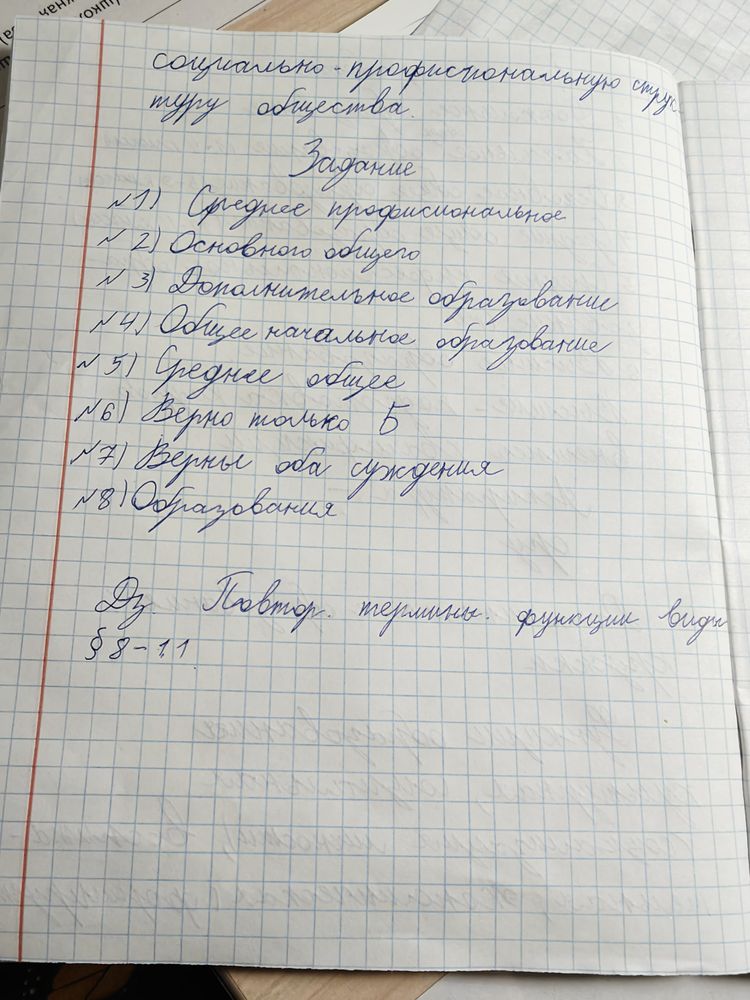 социально-профисиональную струк-
туру общества.
Задание
№1) Среднее профисиональное
№2) Основного общего
№3) Дополнительное образование
№4) Общее начальное образование
№5) Среднее общее
№6) Верно только Б
№7) Верны оба суждения
№8) Образования
Дз Повтор. термины. функции виды
§ 8-11